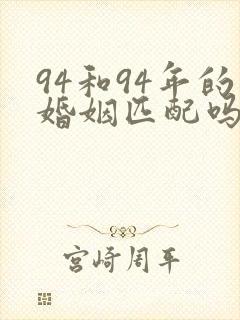 94和94年的
婚姻匹配吗
宫崎周平